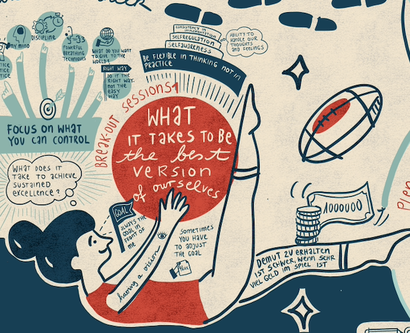 DISCIPLINE
POWERFUL
BREATHING
TECHNIQUES
WHAT DO YOU
WANT TO
GIVE TO THE
WORLD?
RIGHT WAY
DO IT THE
RIGHT WAY
NOT THE
EASY
WAY
SELFREGULATION
SELFAWARENESS
ABILITY TO
HANDLE OUR
THOUGHTS
AND FEELINGS
BE FLEXIBLE IN THINKING NOT IN
PRACTICE
FOCUS ON WHAT
YOU CAN CONTROL
BREAK-OUT SESSIONS
WHAT
IT TAKES TO BE
the best
VERSION
of ourselves
WHAT DOES IT
TAKE TO ACHIEVE
SUSTAINED
EXCELLENCE?
GOAL
ALWAYS THE
GOAL IN
FRONT OF
ME
SOMETIMES
YOU HAVE
TO ADJUST
THE GOAL
having a vision
1000000
DEMUT ZU ERHALTEN
IST SCHWER, WENN SEHR
VIEL GELD IM SPIEL IST